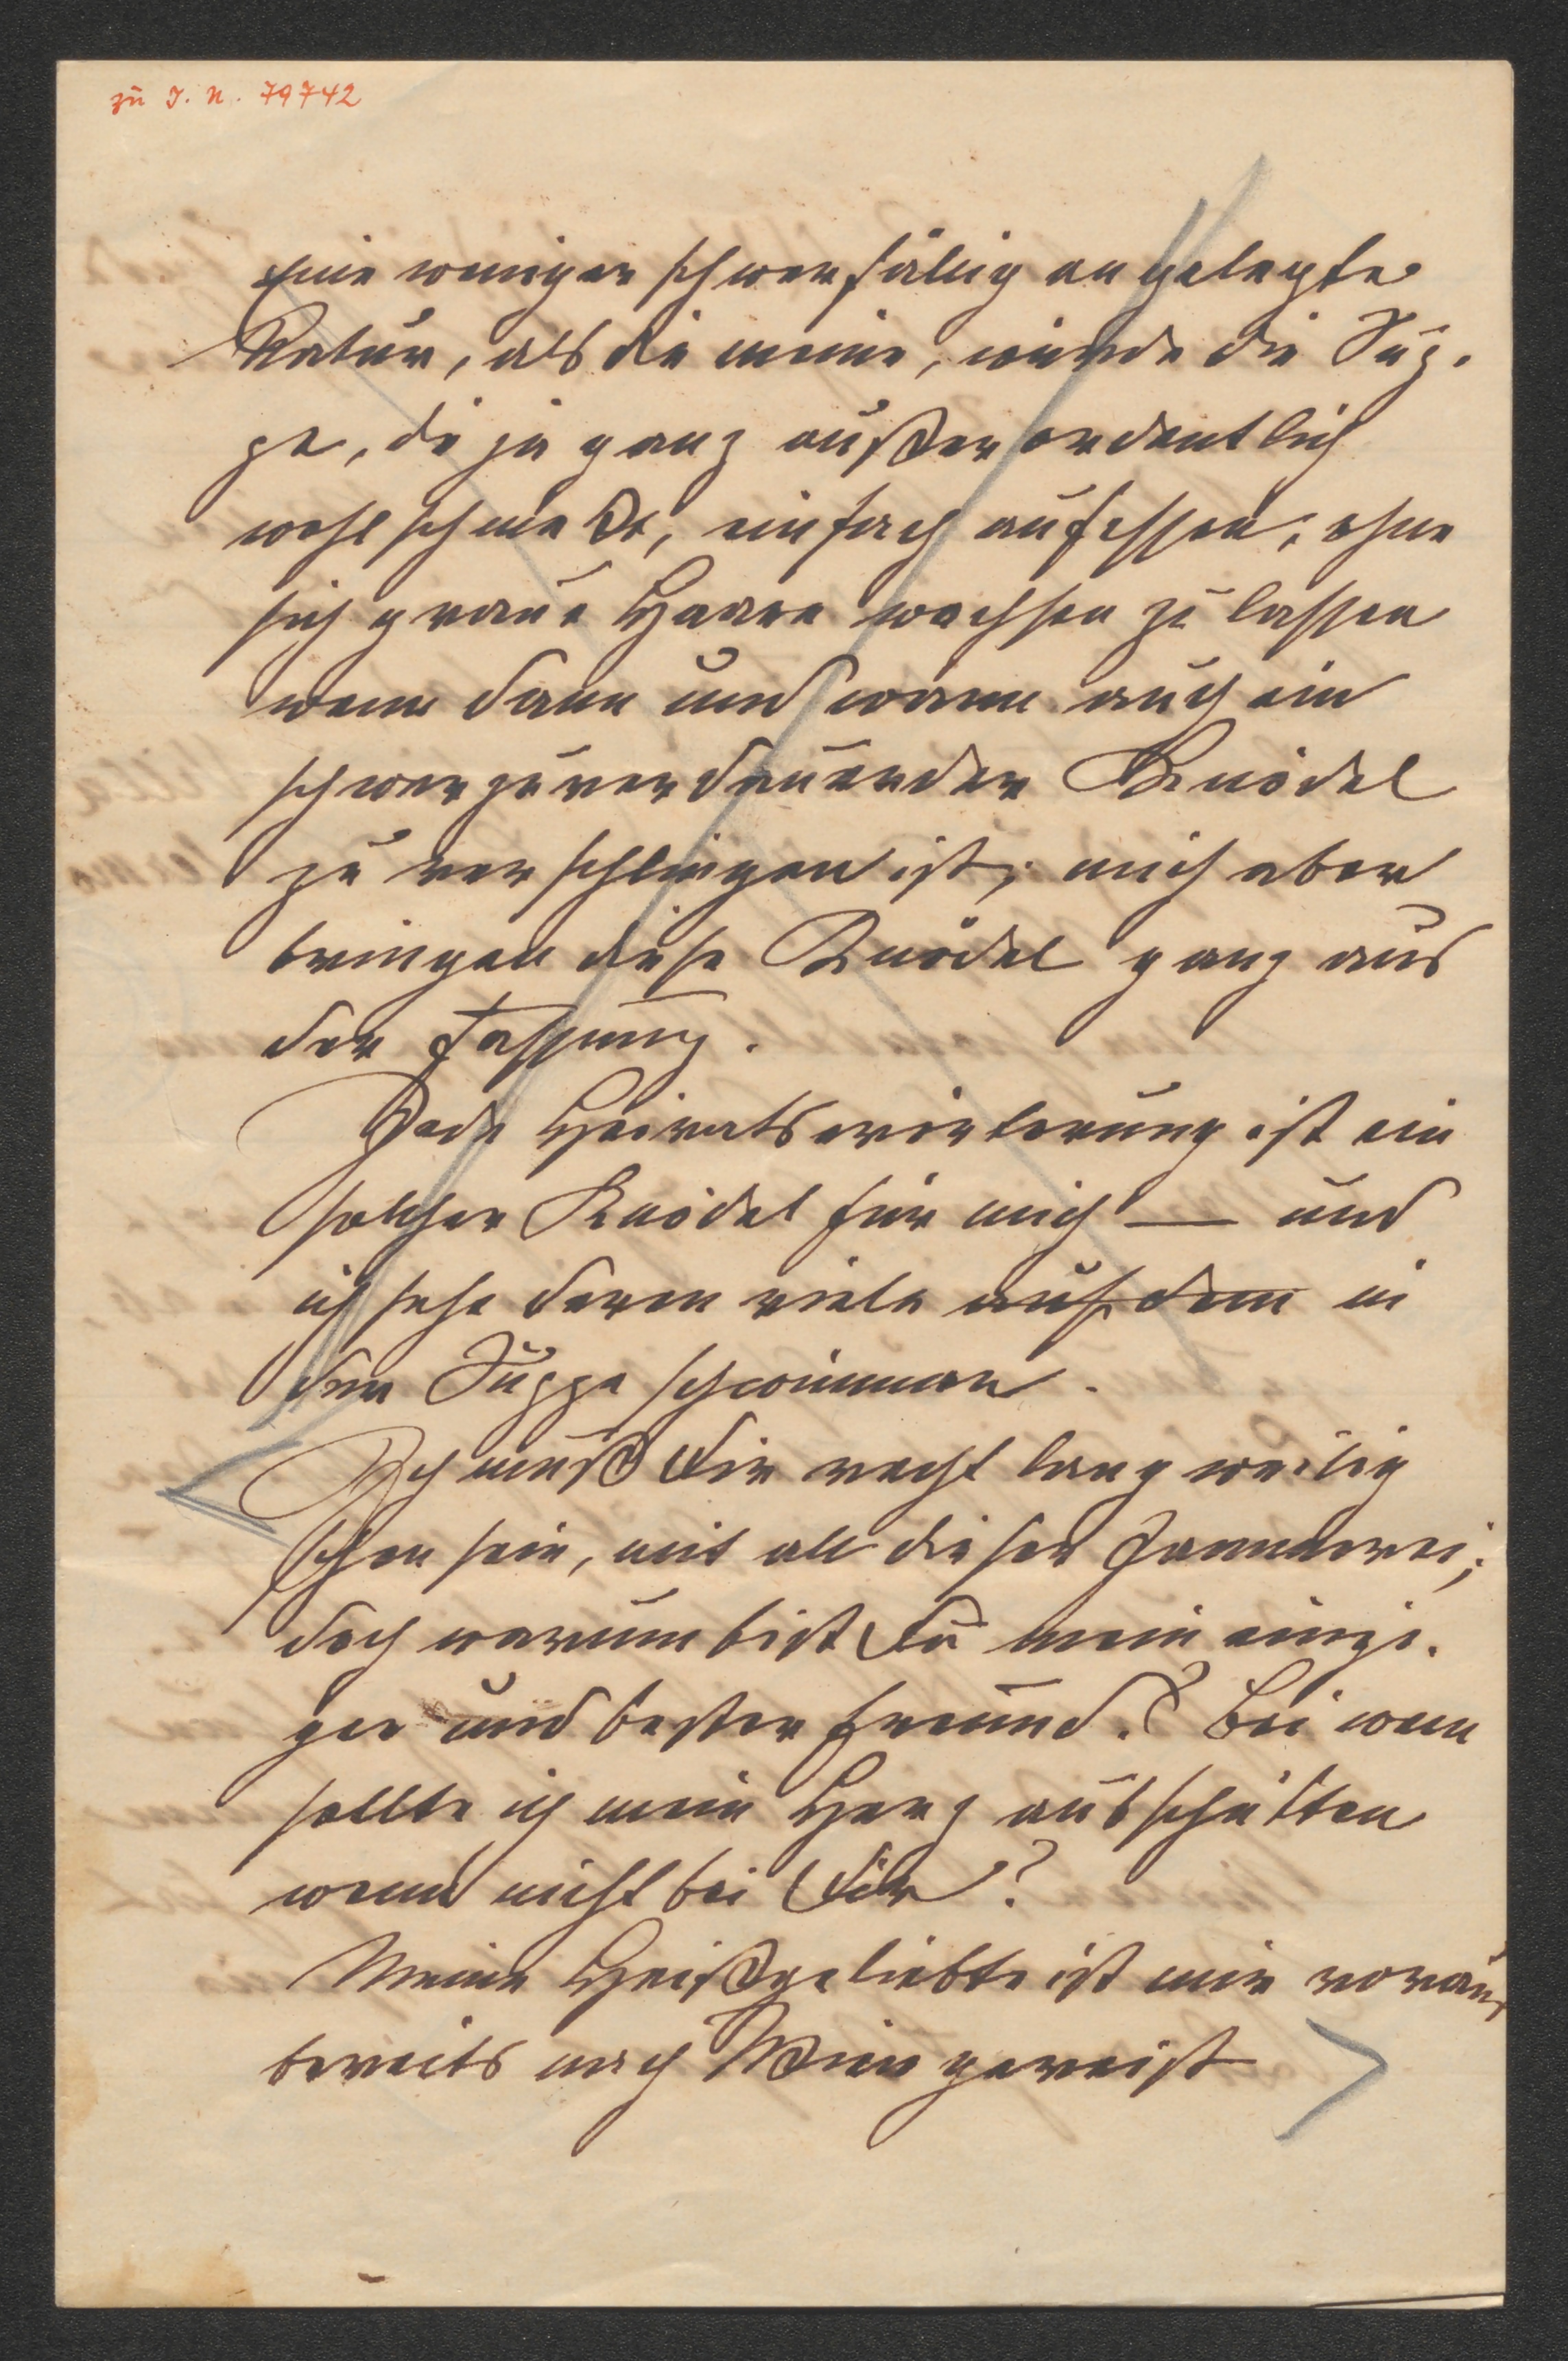 zu I. N. 79742
eine weniger schwerfällig angelegte
Natur, als die meine, würde die Sup-
pe, die ja ganz außerordentlich
wohl schmeckt, einfach aufessen, ohne
sich graue Haare wachsen zu lassen
wenn dann und wann auch ein
schwer zu verdauender Knödel
zu verschlingen ist; mich aber
bringen diese Knödel ganz aus
der Fassung.
Jede Heiratserörterung ist ein
solcher Knödel für mich — und
ich sehe deren viele auf dem in
der Suppe schwimmen.
Ich muß Dir recht langweilig
schon sein, mit all dieser Jammerei;
doch warum bist Du mein einzi-
ger und bester Freund? Bei wem
sollte ich mein Herz ausschütten
wenn nicht bei Dir?
Meine Heißgeliebte ist mir voraus
bereits nach Wien gereist